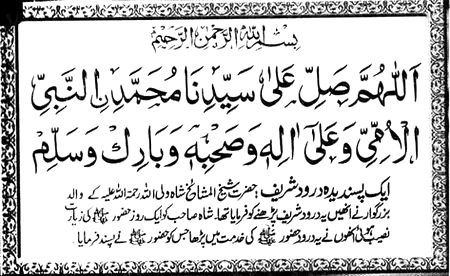 بِسْمِ اللهِ الرَّحْمٰنِ الرَّحِيْمِ
اَللّٰهُمَّ صَلِّ عَلٰى سَيِّدِنَا مُحَمَّدِنِ النَّبِيِّ
الْاُمِّيِّ وَعَلٰٓى اٰلِهٖ وَصَحْبِهٖ وَبَارِكْ وَسَلِّمْ
ایک پسندیدہ درود شریف: حضرت شیخ المشائخ شاہ ولی اللہ رحمۃ اللہ علیہ کے والد
بزرگوار نے انھیں یہ درود شریف پڑھنے کو فرمایا تھا۔ شاہ صاحب کو ایک روز حضور ﷺ کی زیارت
نصیب ہوئی انھوں نے یہ درود حضور ﷺ کی خدمت میں پڑھا جس کو حضور ﷺ نے پسند فرمایا